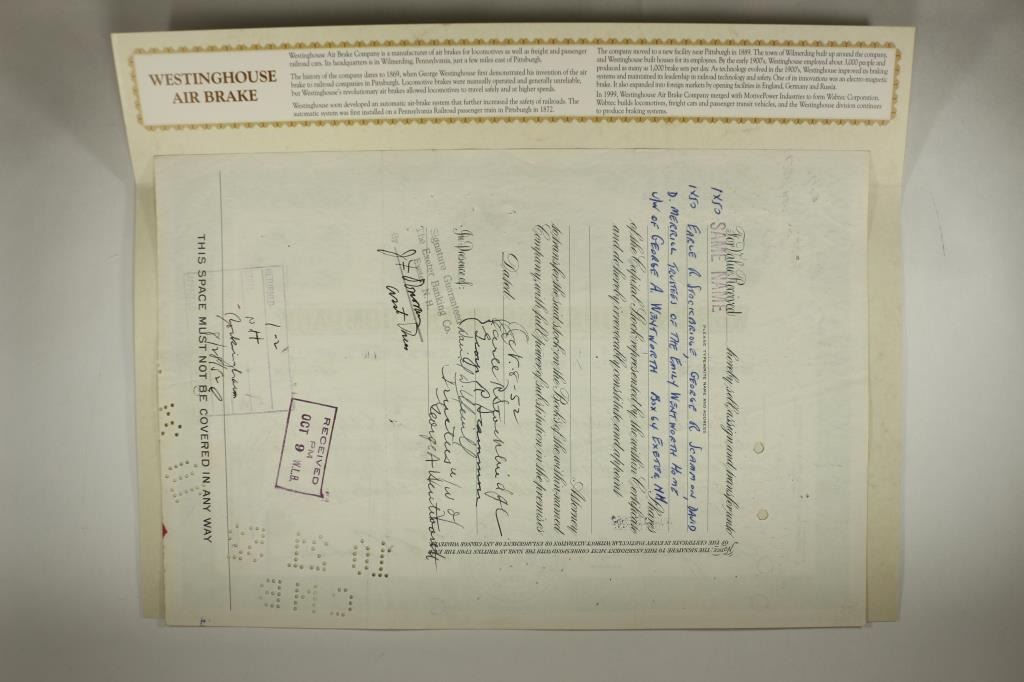 WESTINGHOUSE
AIR BRAKE
Westinghouse Air Brake Company is a manufacturer of air brakes for locomotives as well as freight and passenger
railroad cars. Its headquarters is in Wilmerding, Pennsylvania, just a few miles east of Pittsburgh.
The history of the company dates to 1869, when George Westinghouse first demonstrated his invention of the air
brake to railroad companies in Pittsburgh. Locomotive brakes were manually operated and generally unreliable,
but Westinghouse's revolutionary air brakes allowed locomotives to travel safely and at higher speeds.
Westinghouse soon developed an automatic air-brake system that further increased the safety of railroads. The
automatic system was first installed on a Pennsylvania Railroad passenger train in Pittsburgh in 1872.
The company moved to a new facility near Pittsburgh in 1889. The town of Wilmerding built up around the company,
and Westinghouse built houses for its employees. By the early 1900's, Westinghouse employed about 3,000 people and
produced as many as 1,000 brake sets per day. As technology evolved in the 1900's, Westinghouse improved its braking
systems and maintained its leadership in railroad technology and safety. One of its innovations was an electro-magnetic
brake. It also expanded into foreign markets by opening facilities in England, Germany and Russia.
In 1999, Westinghouse Air Brake Company merged with MotivePower Industries to form Wabtec Corporation.
Wabtec builds locomotives, freight cars and passenger transit vehicles, and the Westinghouse division continues
to produce braking systems.
For Value Received hereby sell, assign and transfer unto
SAME NAME
PLEASE TYPEWRITE NAME AND ADDRESS
1X50 EARLE R STOCKBRIDGE, GEORGE R SCAMMON DAVID
D. MERRILL TRUSTEES OF THE EMILY WENTWORTH HOME
U/W OF GEORGE A. WENTWORTH BOX 64 EXETER NH
Shares
of the Capital Stock represented by the within Certificate
and do hereby irrevocably constitute and appoint
Attorney
to transfer the said stock on the Books of the within named
Company, with full power of substitution in the premises
Dated Oct. 8-52
In Presence of:
Earle R Stockbridge
Trustees u/w of
George A Wentworth
Signature Guaranteed
The Exeter Banking Co.
Exeter, N. H.
BY
Asst Treas
RECEIVED
PM
OCT 9 W.L.B.
NH
Rockingham
THIS SPACE MUST NOT BE COVERED IN ANY WAY
(NOTICE: THE SIGNATURE TO THIS ASSIGNMENT MUST CORRESPOND WITH THE NAME AS WRITTEN UPON THE FACE
OF THE CERTIFICATE IN EVERY PARTICULAR WITHOUT ALTERATION OR ENLARGEMENT OR ANY CHANGE WHATEVER)